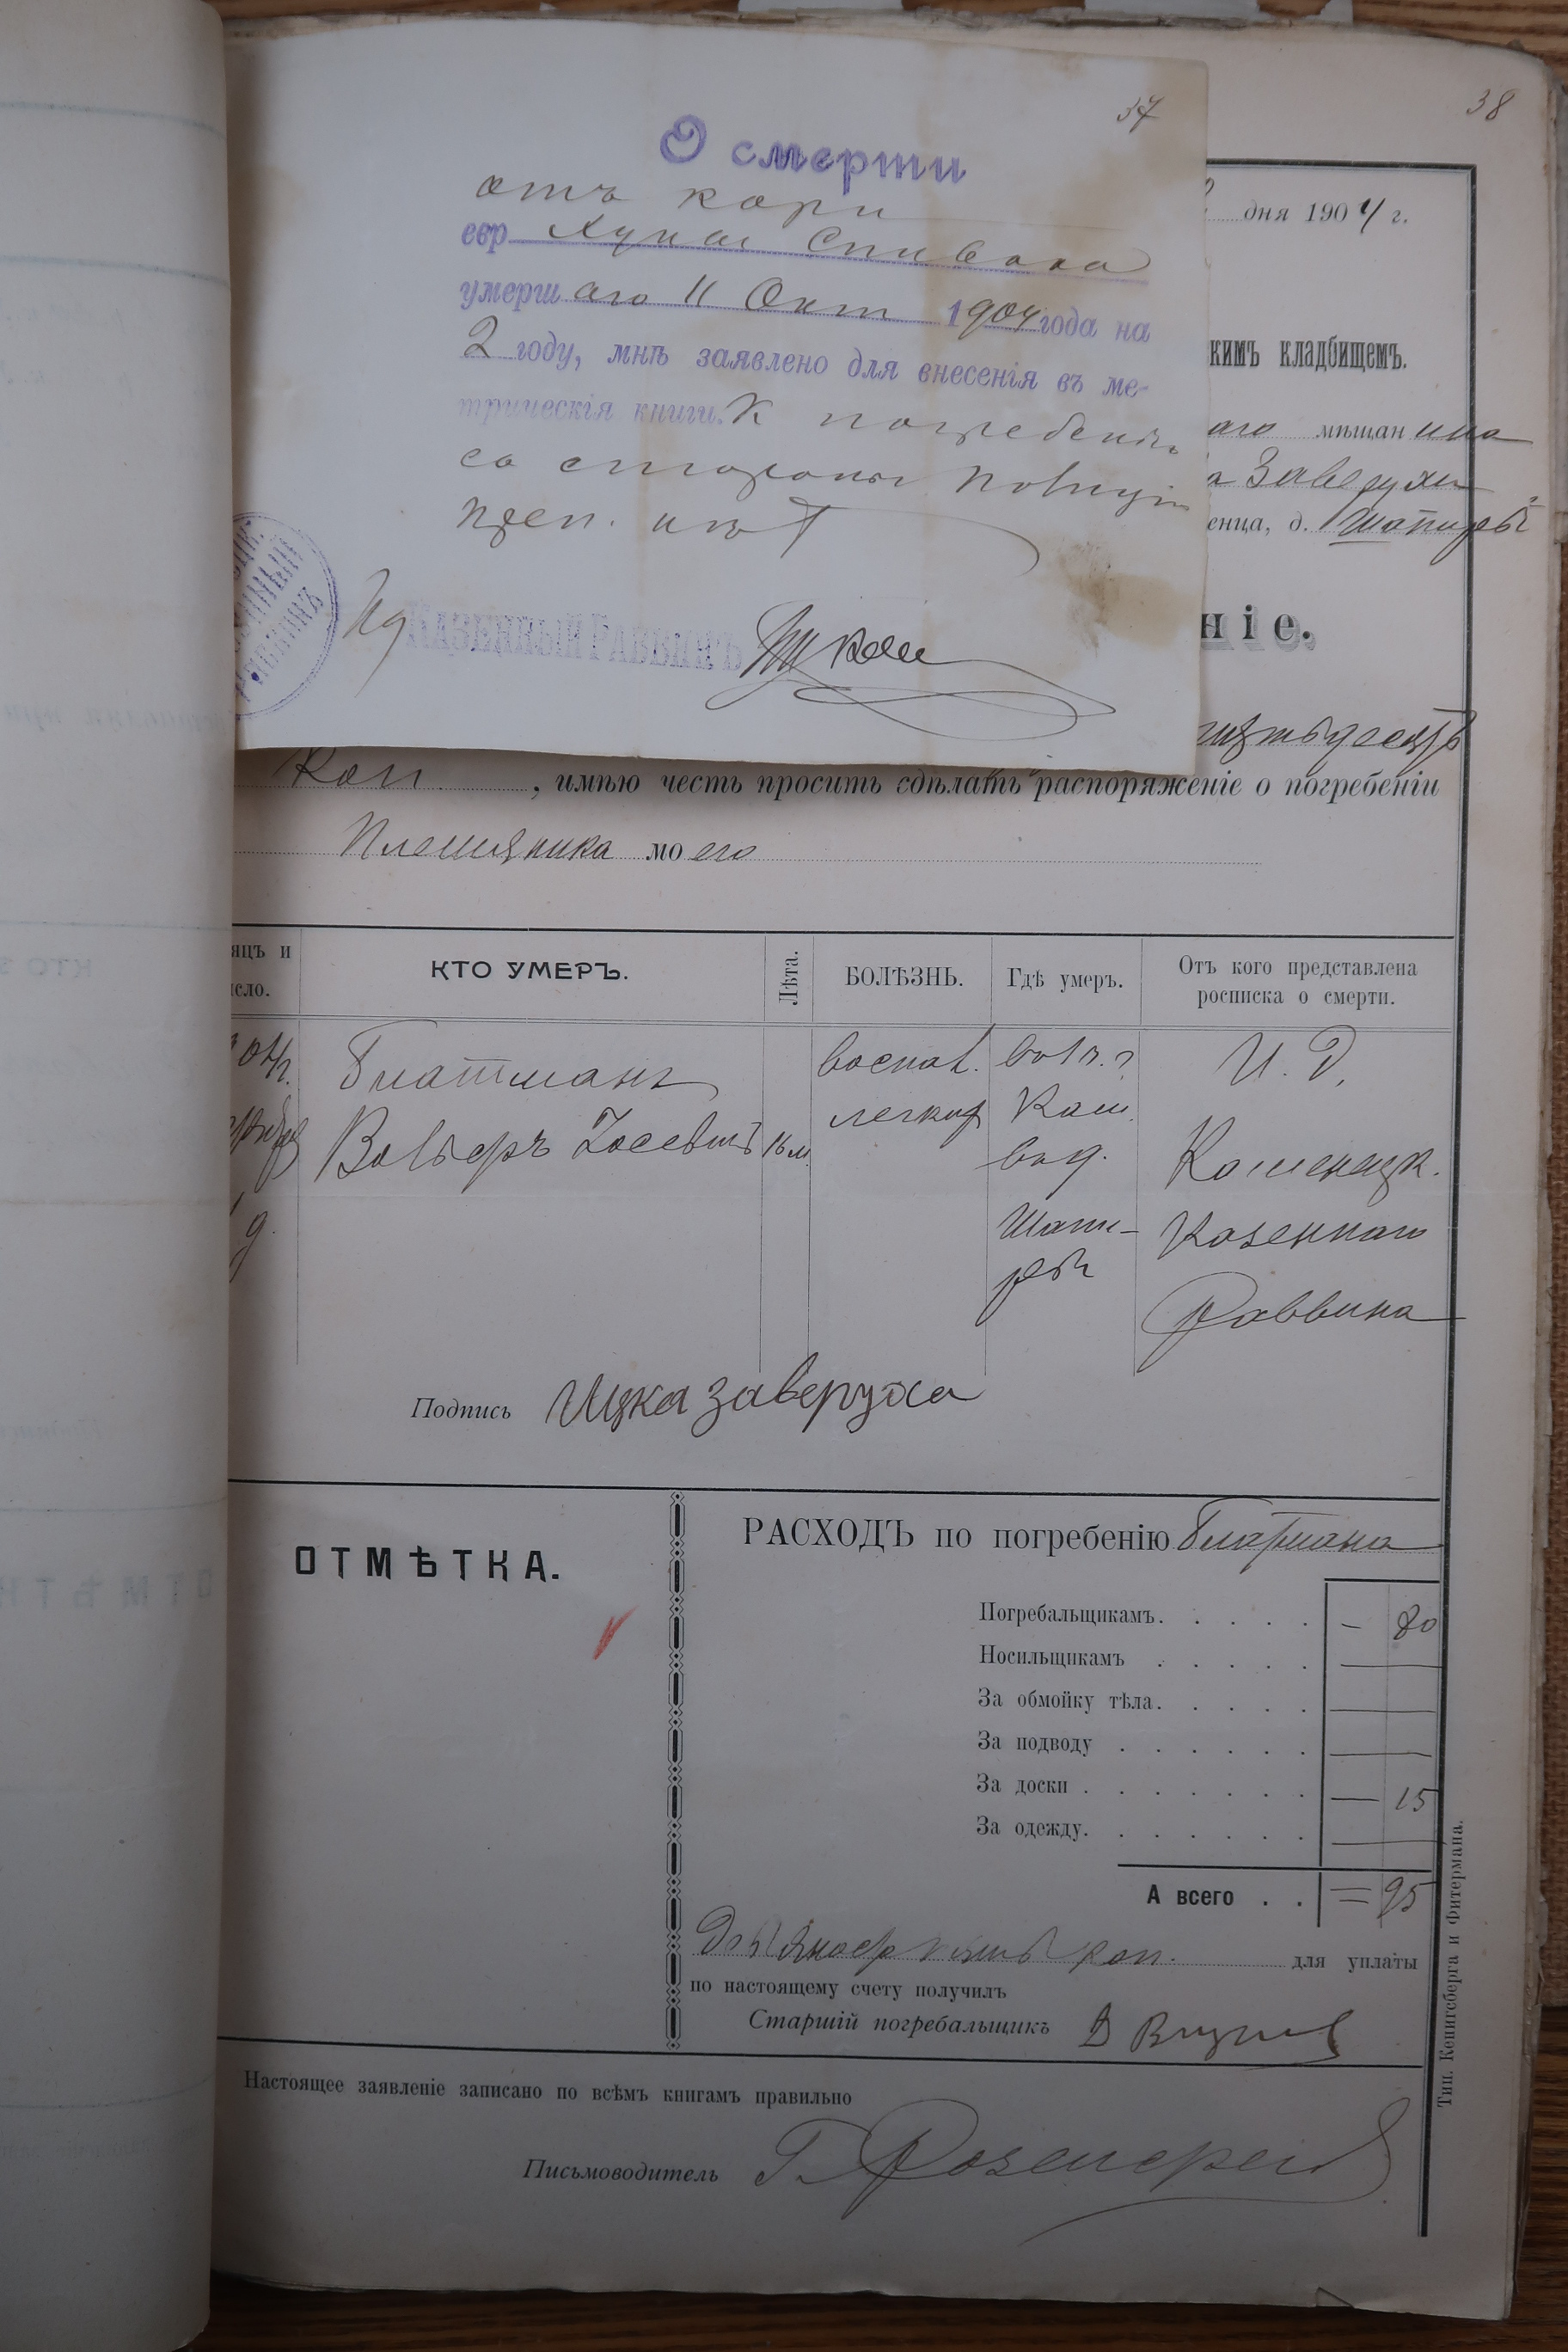 37
О смерти
отъ кори
евр. Хуны Спивака
умерш аго 11 Окт 1904 года на
2 году, мнѣ заявлено для внесенія въ ме-
трическія книги. К погребенію
со стороны полиціи
преп. нѣт
КАЗЕННЫЙ РАВВИНЪ
38
дня 1904 г.
кимъ кладбищемъ.
аго мѣщан ина
Заверухи
енца, д. Шапиры
ніе.
пятьдесятъ
коп. , имѣю честь просить сдѣлать распоряженіе о погребеніи
Племянника мо его
яцъ и
исло.
КТО УМЕРЪ.
Лѣта.
БОЛѢЗНЬ.
Гдѣ умеръ.
Отъ кого представлена
росписка о смерти.
окт.
Глатманъ
Вольфъ
воспал.
легких
Кам.
Шапи-
ры
И. Д.
Каменецк.
Казеннаго
Раввина
Подпись Ицка заверуха
ОТМѢТКА.
РАСХОДЪ по погребенію Глатмана
Погребальщикамъ. . . . . — 80
Носильщикамъ . . . . . —
За обмойку тѣла. . . . . —
За подводу . . . . . . —
За доски . . . . . . . — 15
За одежду. . . . . . . —
А всего . . = 95
коп. для уплаты
по настоящему счету получилъ
Старшій погребальщикъ
Настоящее заявленіе записано по всѣмъ книгамъ правильно
Письмоводитель Г.
Тип. Кенигсберга и Фитермана.